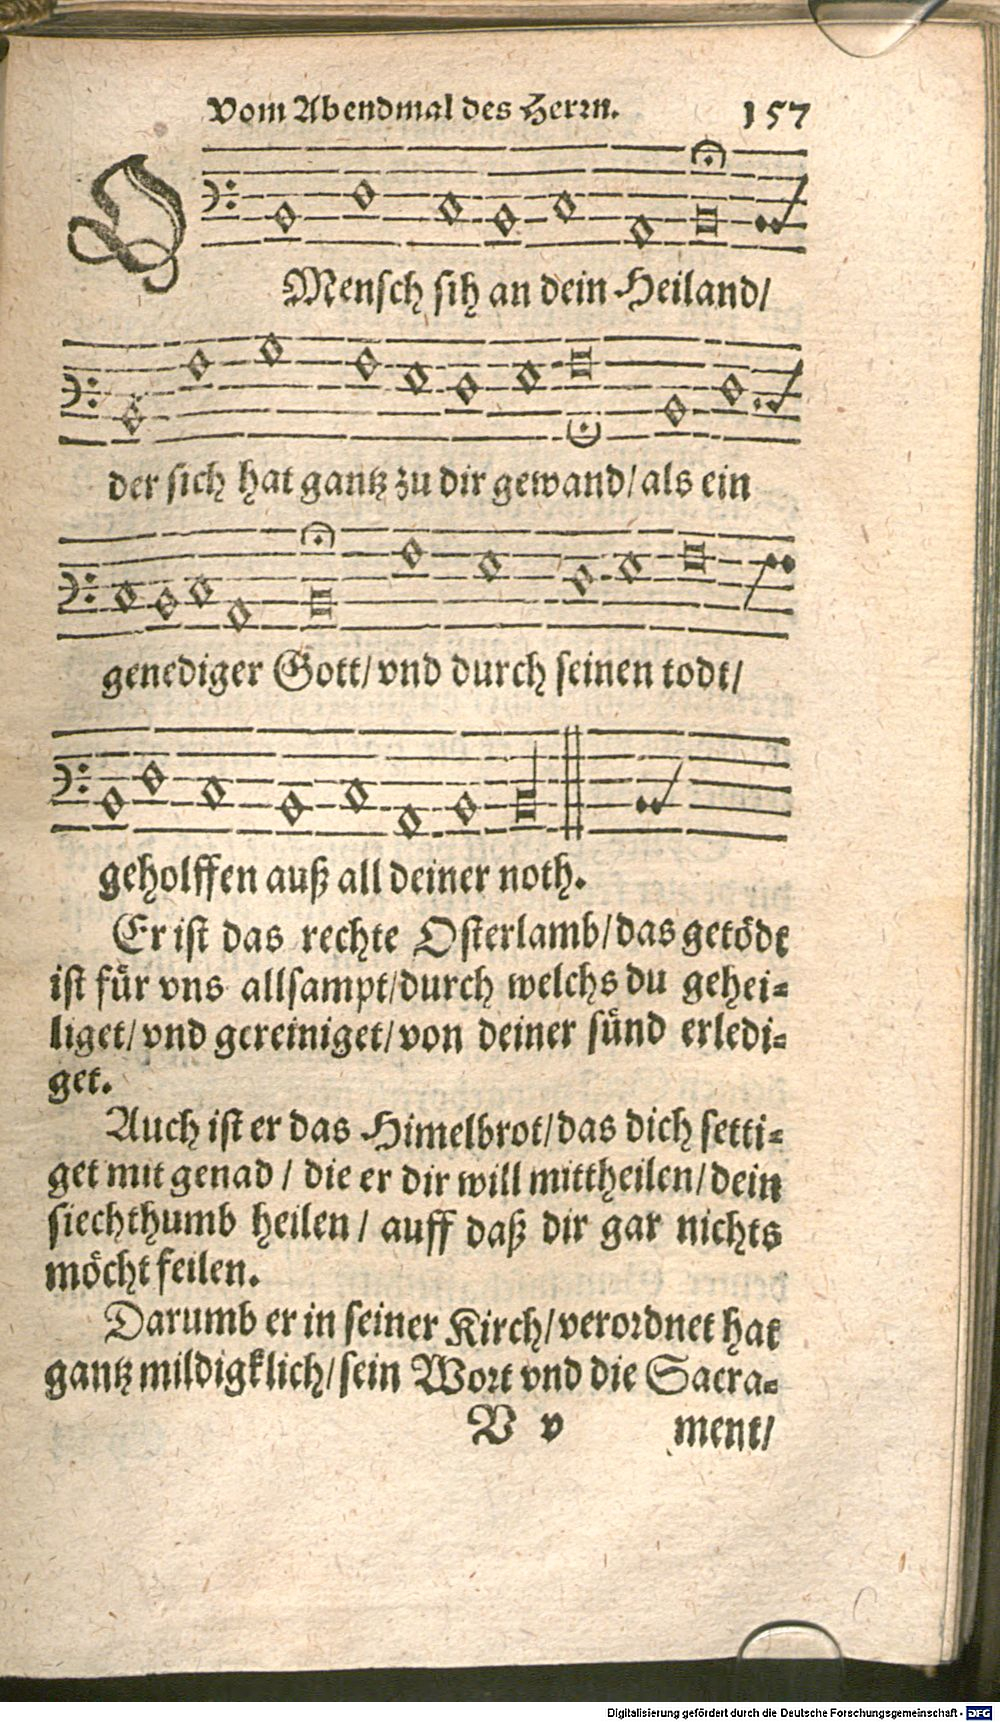 Vom Abendmal des Herrn. 157
O Mensch sih an dein Heiland/
der sich hat gantz zu dir gewand/ als ein
genediger Gott/ vnd durch seinen todt/
geholffen auß all deiner noth.
Er ist das rechte Osterlamb/ das getödt
ist für vns allsampt/ durch welchs du gehei-
liget/ vnd gereiniget/ von deiner sünd erledi-
get.
Auch ist er das Himelbrot/ das dich setti-
get mit genad/ die er dir will mittheilen/ dein
siechthumb heilen/ auff daß dir gar nichts
möcht feilen.
Darumb er in seiner Kirch/ verordnet hat
gantz mildigklich/ sein Wort vnd die Sacra-
V v ment/
Digitalisierung gefördert durch die Deutsche Forschungsgemeinschaft - DFG